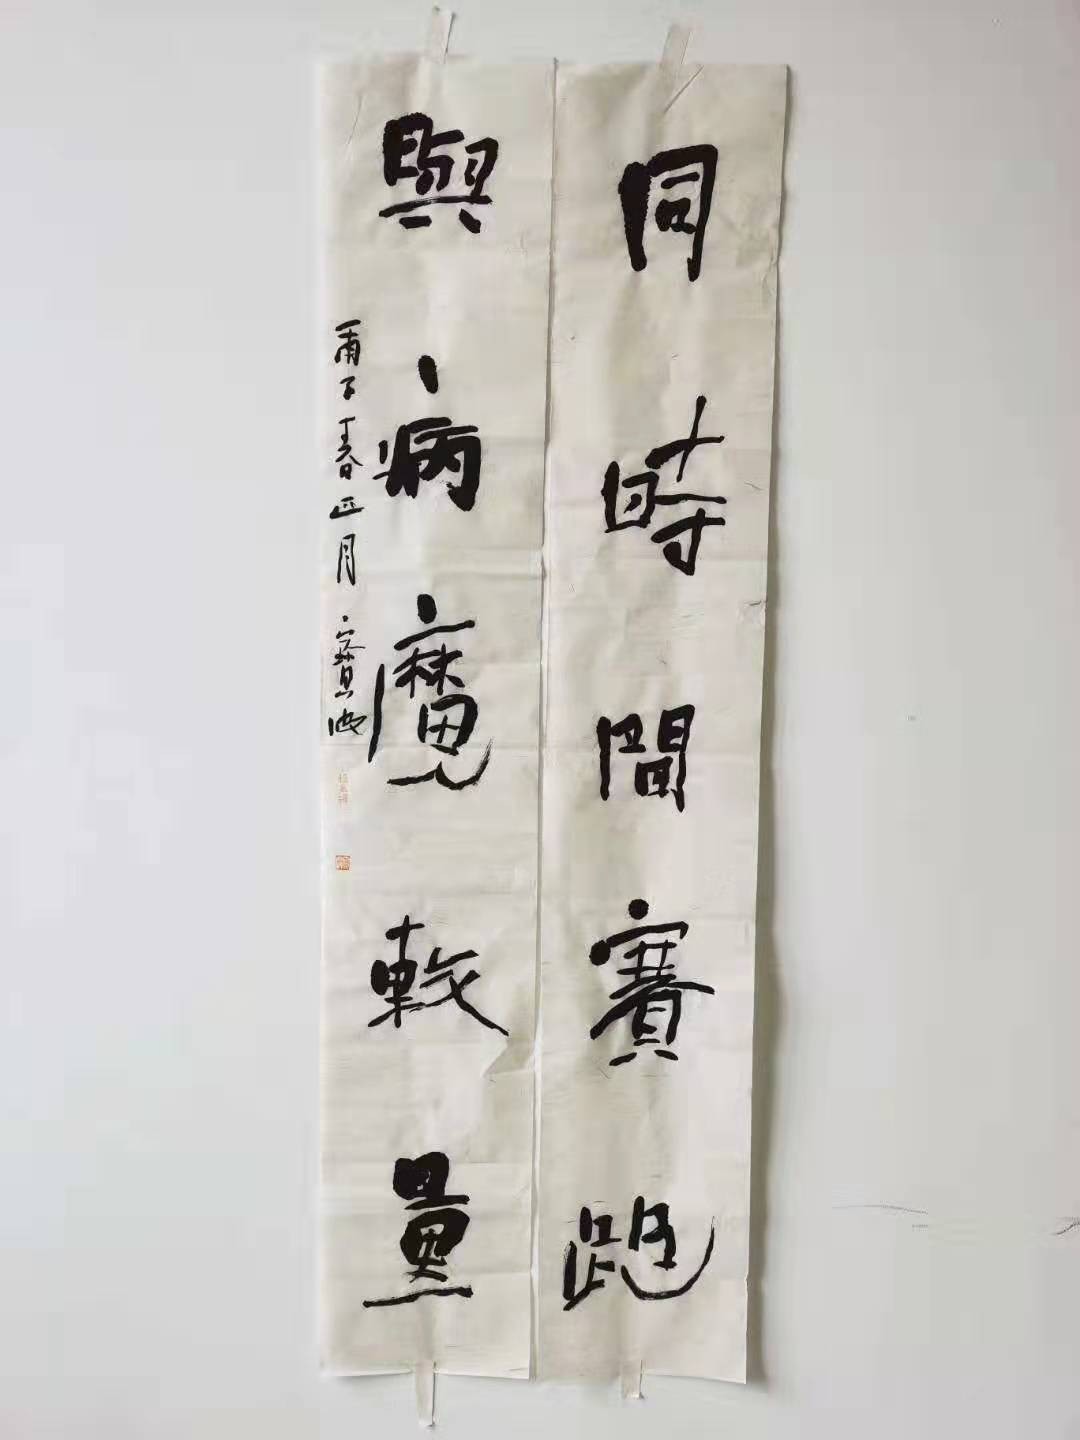 同時間賽跑
與病魔較量
春正月